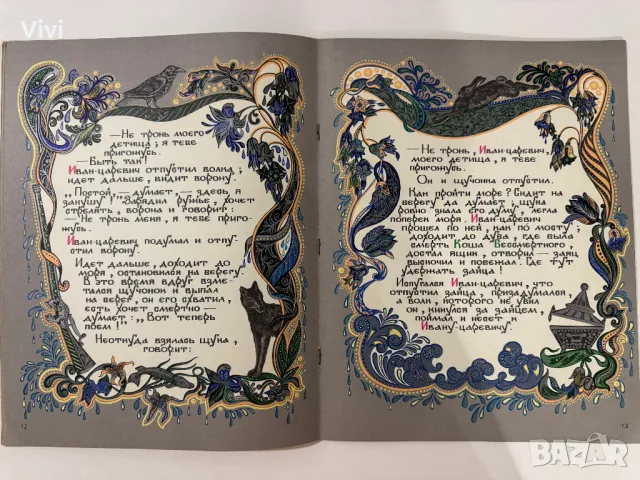 Vivi
—Не тронь моего
детища; я тебе
пригожусь.
—Быть так!
Иван-царевич отпустил волка;
идет дальше, видит ворону.
„Постой, — думает, — здесь я
закушу!" Зарядил ружье, хочет
стрелять, ворона и говорит:
—Не тронь меня, я тебе приго-
жусь.
Иван-царевич подумал и отпу-
стил ворону.
Идет дальше, доходит до
моря, остановился на берегу.
В это время вдруг взме-
тался щучонок и выпал
на берег, он его схватил,
есть хочет смертно —
думает: „Вот теперь
поем!"
Неоткуда взялась щука,
говорит:
12
—Не тронь, Иван-царевич,
моего детища, я тебе
пригожусь.
Он и щучонка отпустил.
Как пройти море? Сидит на
берегу да думает; щука
ровно знала его думу, легла
поперек моря. Иван-царевич
прошел по ней, как по мосту;
доходит до дуба, где была
смерть Коша Бессмертного,
достал ящик, отворил — заяц
выскочил и побежал. Где тут
удержать зайца!
Испугался Иван-царевич, что
отпустил зайца, призадумался,
а волк, которого не убил
он, кинулся за зайцем,
поймал и несет к
Ивану-царевичу.
13
BAZAR
bg